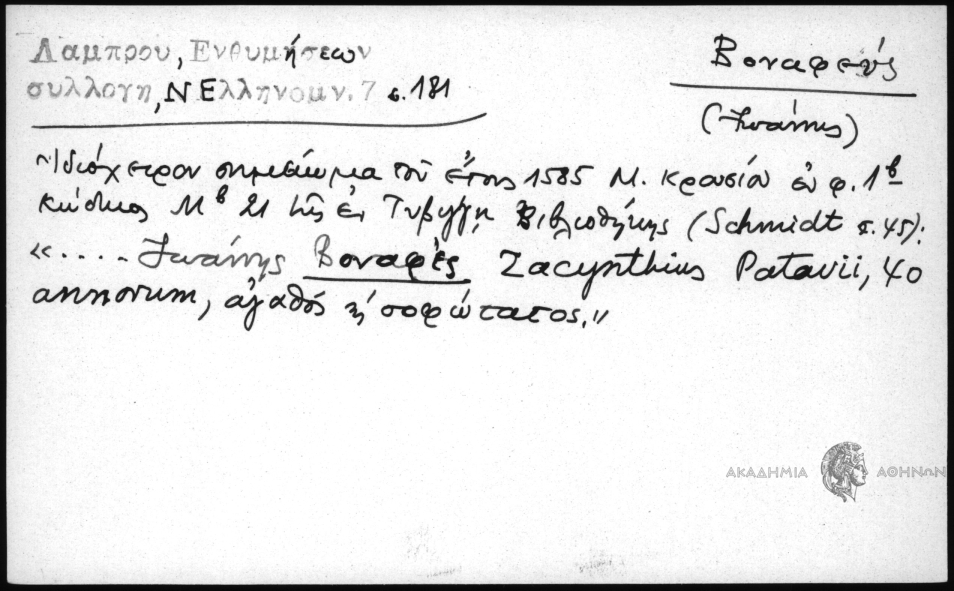 Λαμπρου, Ενθυμήσεων
συλλογη, Ν Ελληνομν. 7 σ. 181
Βοναφεύς
(Ἰωάννης)
Ἰδιόχειρον σημείωμα τοῦ ἔτους 1585 Μ. Κρουσίου ἐν φ. 1β
κώδικος Μβ 21 τῆς ἐν Τυβίγγῃ Βιβλιοθήκης (Schmidt σ. 45):
«..... Ἰωάννης Βοναφὲς Zacynthius Patavii, 40
annorum, ἀγαθός κ σοφώτατος."
ΑΚΑΔΗΜΙΑ ΑΘΗΝΩΝ